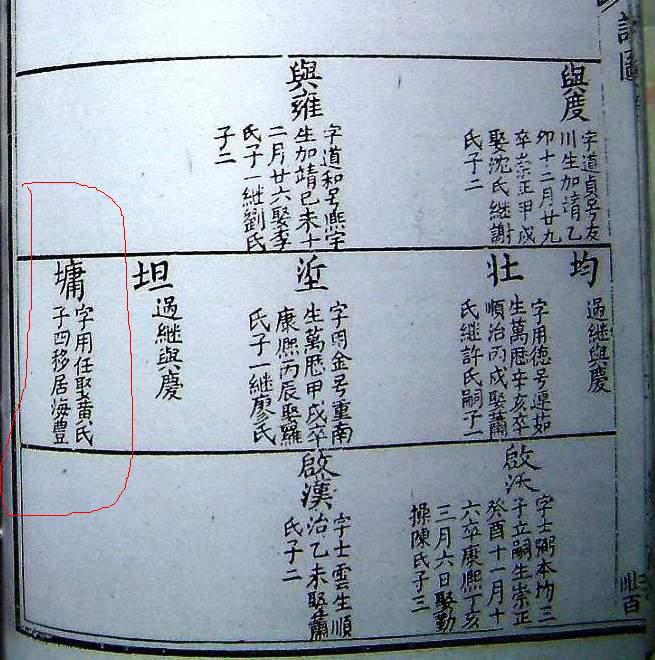 與度
字道貞号友
川生加靖乙
卯十二月廿九
卒崇正甲戌
娶沈氏継謝
氏子二
與雍
字道和号熊宇
生加靖己未十
二月廿六娶李
氏子一継劉氏
子二
均
過継與慶
壮
字用德号連茹
生萬歴辛亥卒
順治丙戌娶蕭
氏継許氏嗣子一
坙
生萬歴甲戌卒
康熙丙辰娶羅
氏子一継廖氏
坦
過継與慶
墉
字用任娶黄氏
子四移居海豊
啟沃
字士弼本均三
子立嗣生崇正
癸酉十一月十
六卒康熙丁亥
三月六日娶勤
操陳氏子三
啟漢
字士雲生順
治乙未娶蕭
氏子二